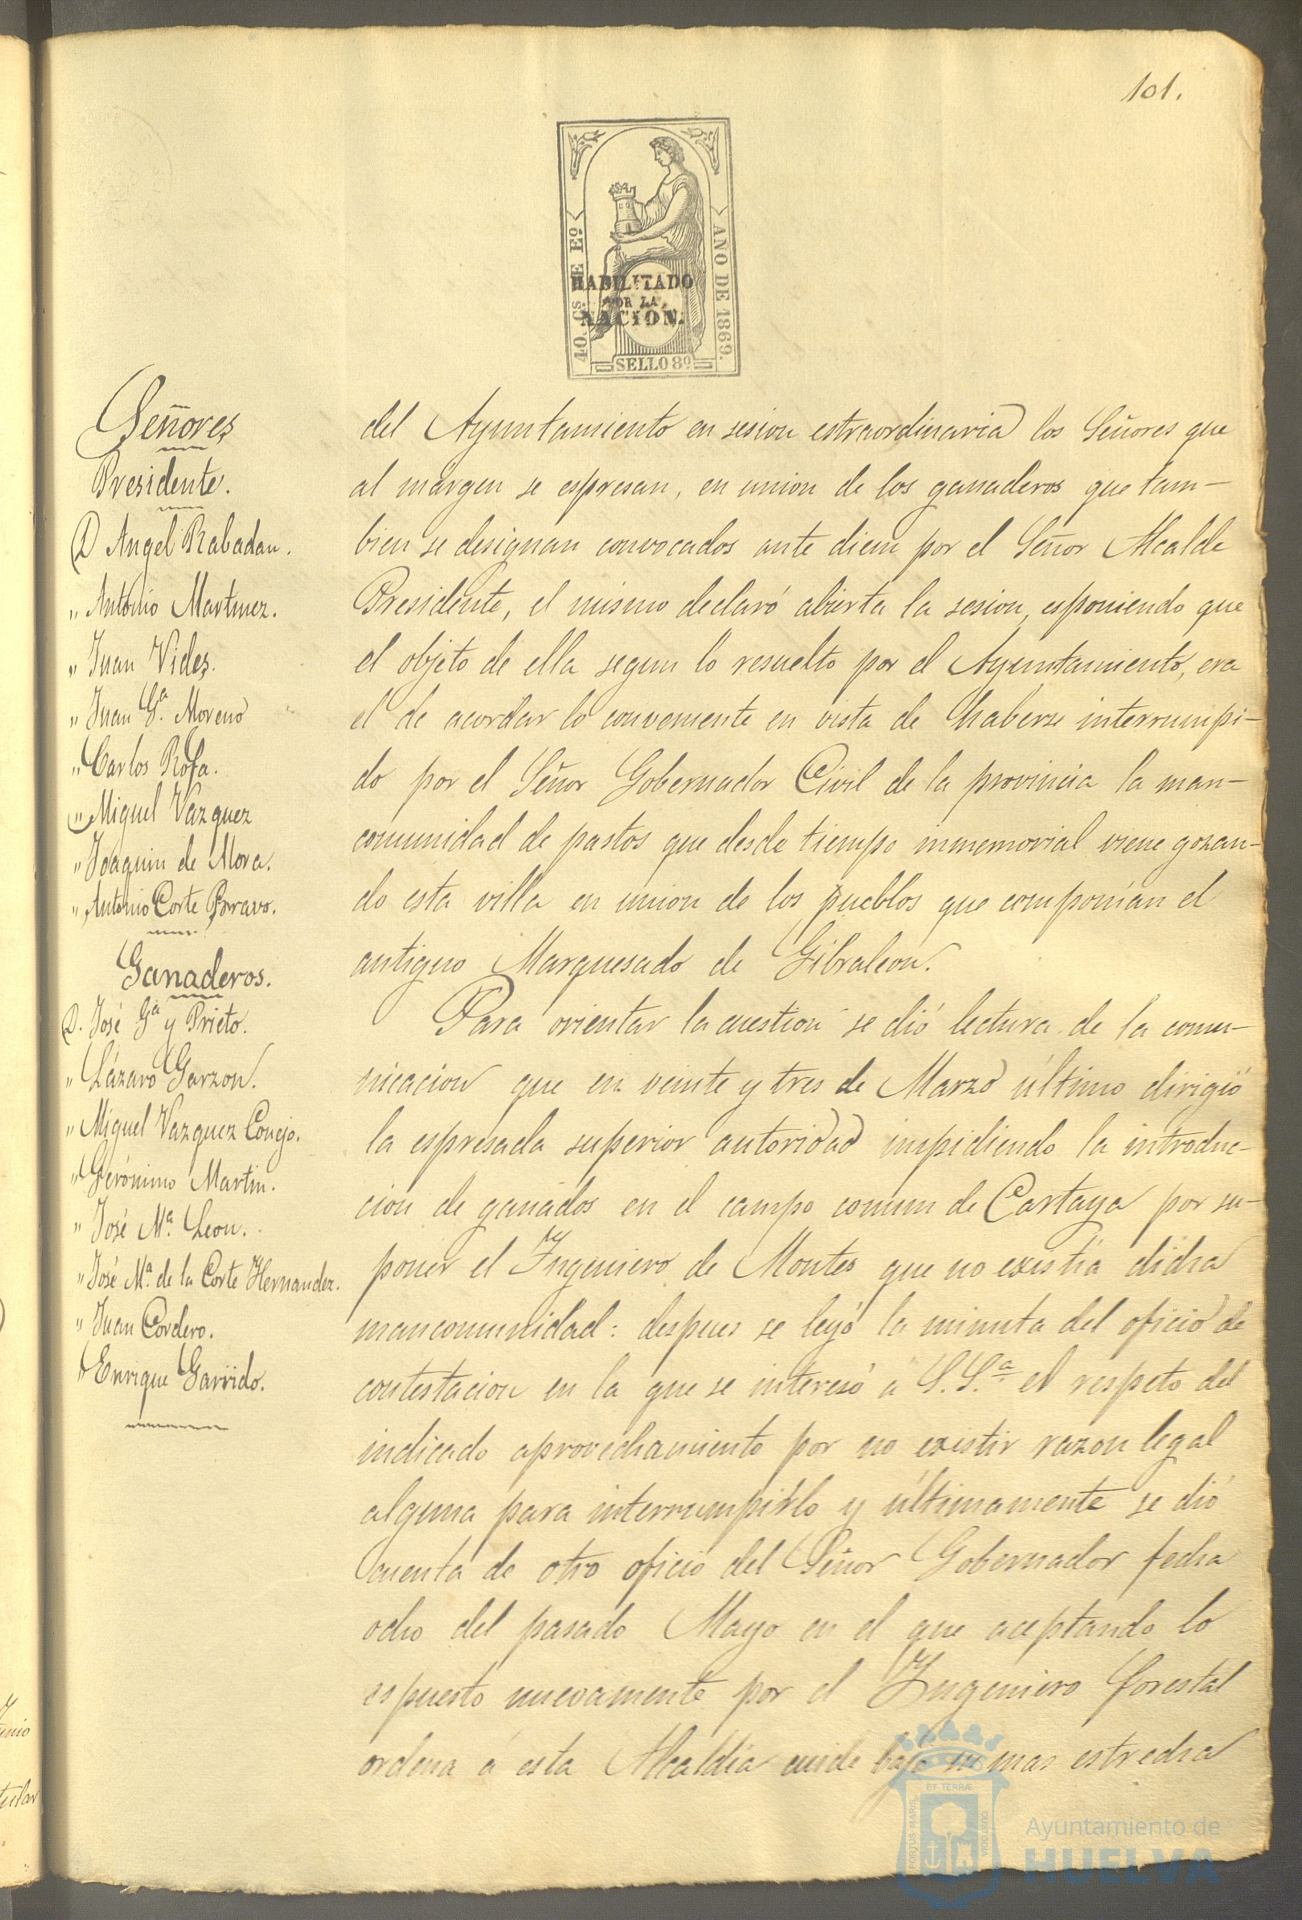 101.
40. Cs. DE Eº.
AÑO DE 1869.
HABILITADO
POR LA
NACION.
SELLO 8º
Señores
Presidente.
D Angel Rabadan.
" Antonio Martinez.
" Juan Vides.
" Juan Gª Moreno
" Carlos Rofa.
" Miguel Vazquez
" Joaquin de Mora.
" Antonio Corte Bravo.
Ganaderos.
D. José Gª y Prieto.
" Lázaro Garzon.
" Miguel Vazquez Conejo.
" Gerónimo Martin.
" José Mª Leon.
" José Mª de la Corte Hernandez.
" Juan Cordero.
" Enrique Garrido.
del Ayuntamiento en sesion estraordinaria los Señores que
al margen se espresan, en union de los ganaderos que tam-
bien se designan convocados ante diem por el Señor Alcalde
Presidente, el mismo declaró abierta la sesion, esponiendo que
el objeto de ella segun lo resuelto por el Ayuntamiento, era
el de acordar lo conveniente en vista de haberse interrumpi-
do por el Señor Gobernador Civil de la provincia la man-
comunidad de pastos que desde tiempo inmemorial viene gozan-
do esta villa en union de los pueblos que componian el
antiguo Marquesado de Gibraleon.
Para orientar la cuestion se dió lectura de la comu-
nicacion que en veinte y tres de Marzo último dirigió
la espresada superior autoridad impidiendo la introduc-
cion de ganados en el campo comun de Cartaya por su-
poner el Ingeniero de Montes que no existia dicha
mancomunidad: despues se leyó la minuta del oficio de
contestacion en la que se interesó a S.S.ª el respeto del
indicado aprovechamiento por no existir razon legal
alguna para interrumpirlo y últimamente se dió
cuenta de otro oficio del Señor Gobernador fecha
ocho del pasado Mayo en el que aceptando lo
espuesto nuevamente por el Ingeniero forestal
ordena á esta Alcaldía cuide bajo su mas estrecha
PORTUS MARIS
ET TERRÆ
CUSTODIA
Ayuntamiento de
HUELVA